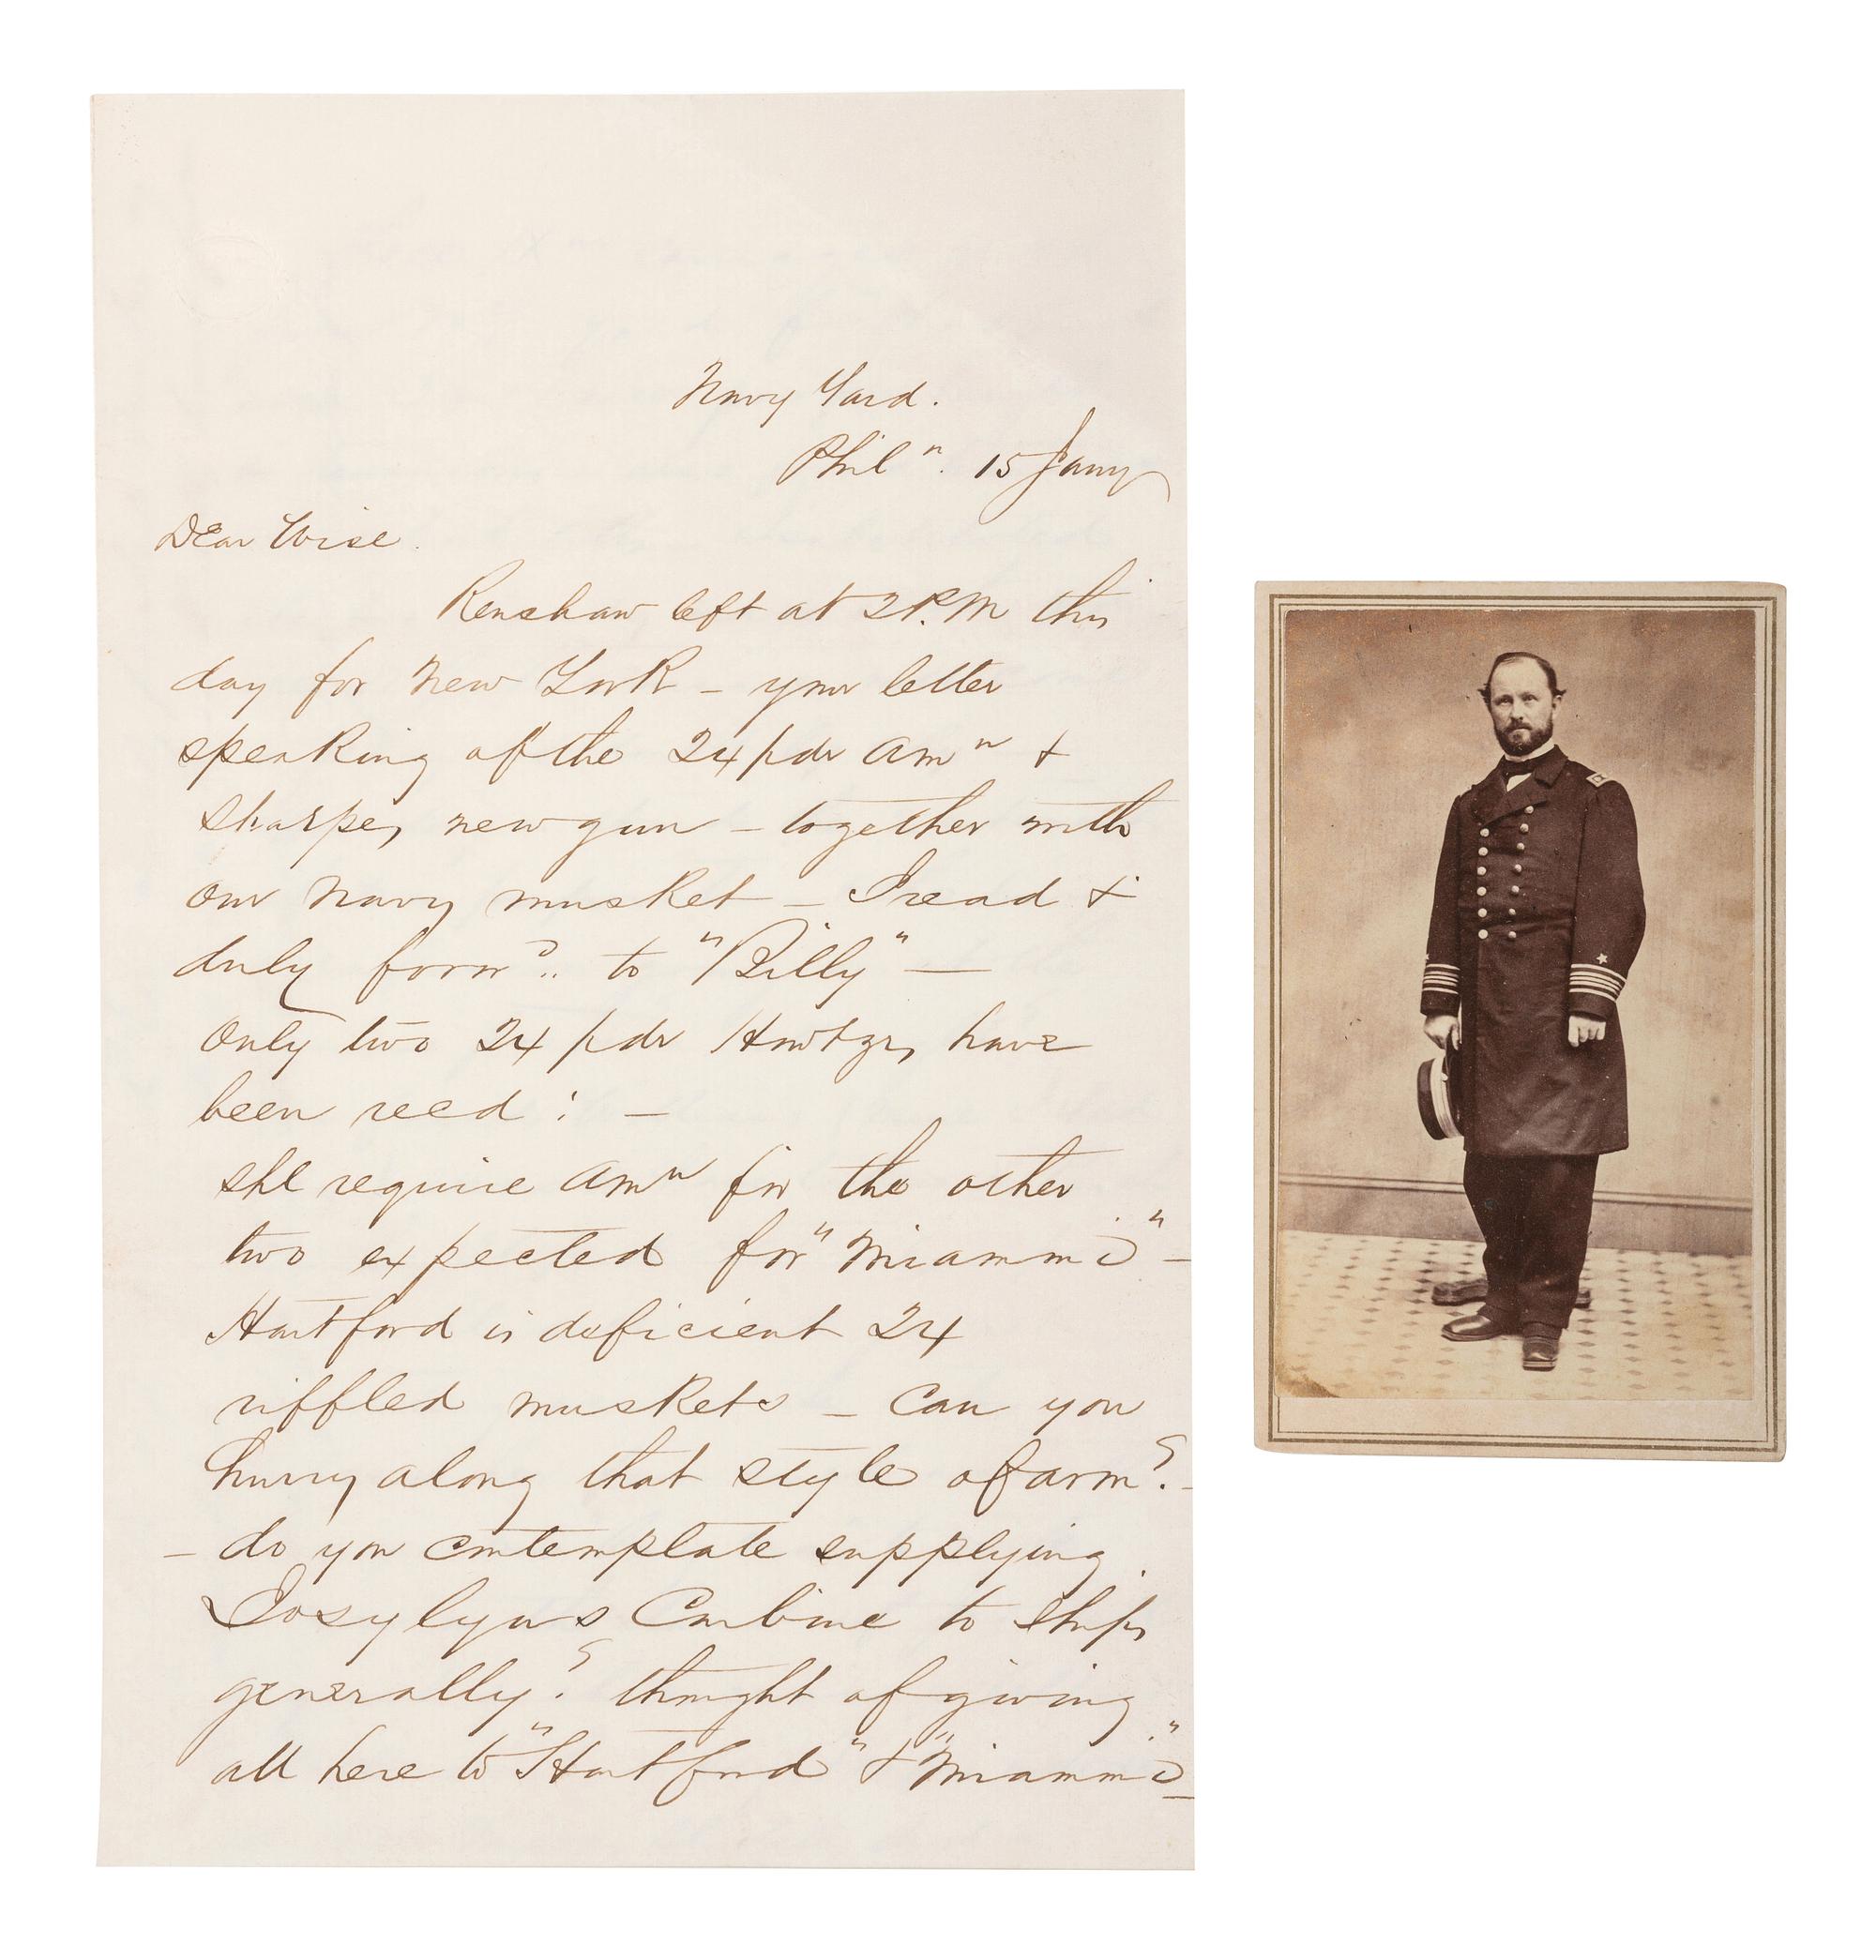 Navy Yard.
Phil^a. 15 Jany
Dear Wise.
Renshaw left at 2 P.M this
day for New York – your letter
speaking of the 24 pdr am^n &
sharpes new gun – together with
our Navy musket – I read &
duly forw^d.. to "Billy" —
Only two 24 pdr Howtzrs have
been recd : —
shl require am^n for the other
two expected for "Miammi" –
Hartford is deficient 24
riffled muskets – Can you
hurry along that style of arm? –
– do you contemplate supplying
Joslyns Carbine to Ships
generally? thought of giving
all here to "Hartford" & "Miammi"